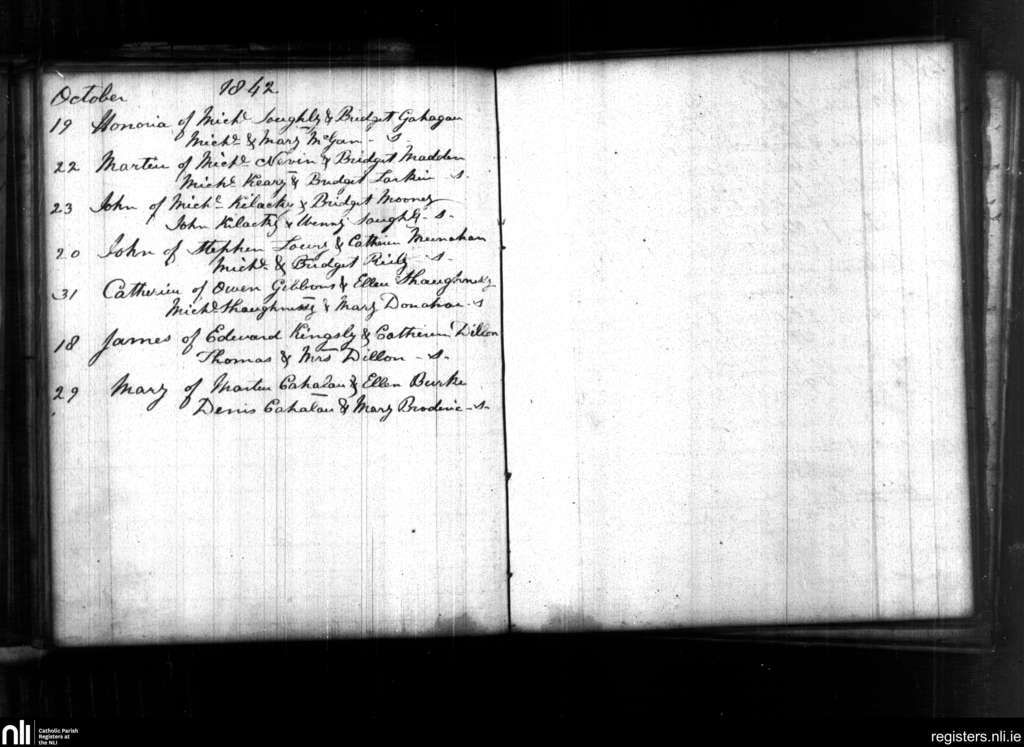 October 1842
19 Honoria of Mich.l Loughly & Bridget Gahagan
Mich.l & Mary McGan - s
22 Martin of Mich.l Nevin & Bridget Madden
Mich.l Keary & Bridget Larkin s.
23 John of Mich.l Kilacky & Bridget Mooney
John Kilacky & Loughly - s -
20 John of Stephen Lowry & Catherin
Mich.l & Bridget Riely - s -
31 Catherien of Owen Gibbons & Ellen Shaughnessy
Mich.l Shaughnessy & Mary Donahoe - s
18 James of Edward Kingsly & Catherien Dillon
Thomas & Mrs Dillon - s -
29 Mary of Martin Cahalan & Ellen Burke
Denis Cahalan & Mary Broderic - s -
nli
Catholic Parish
Registers at
the NLI
registers.nli.ie